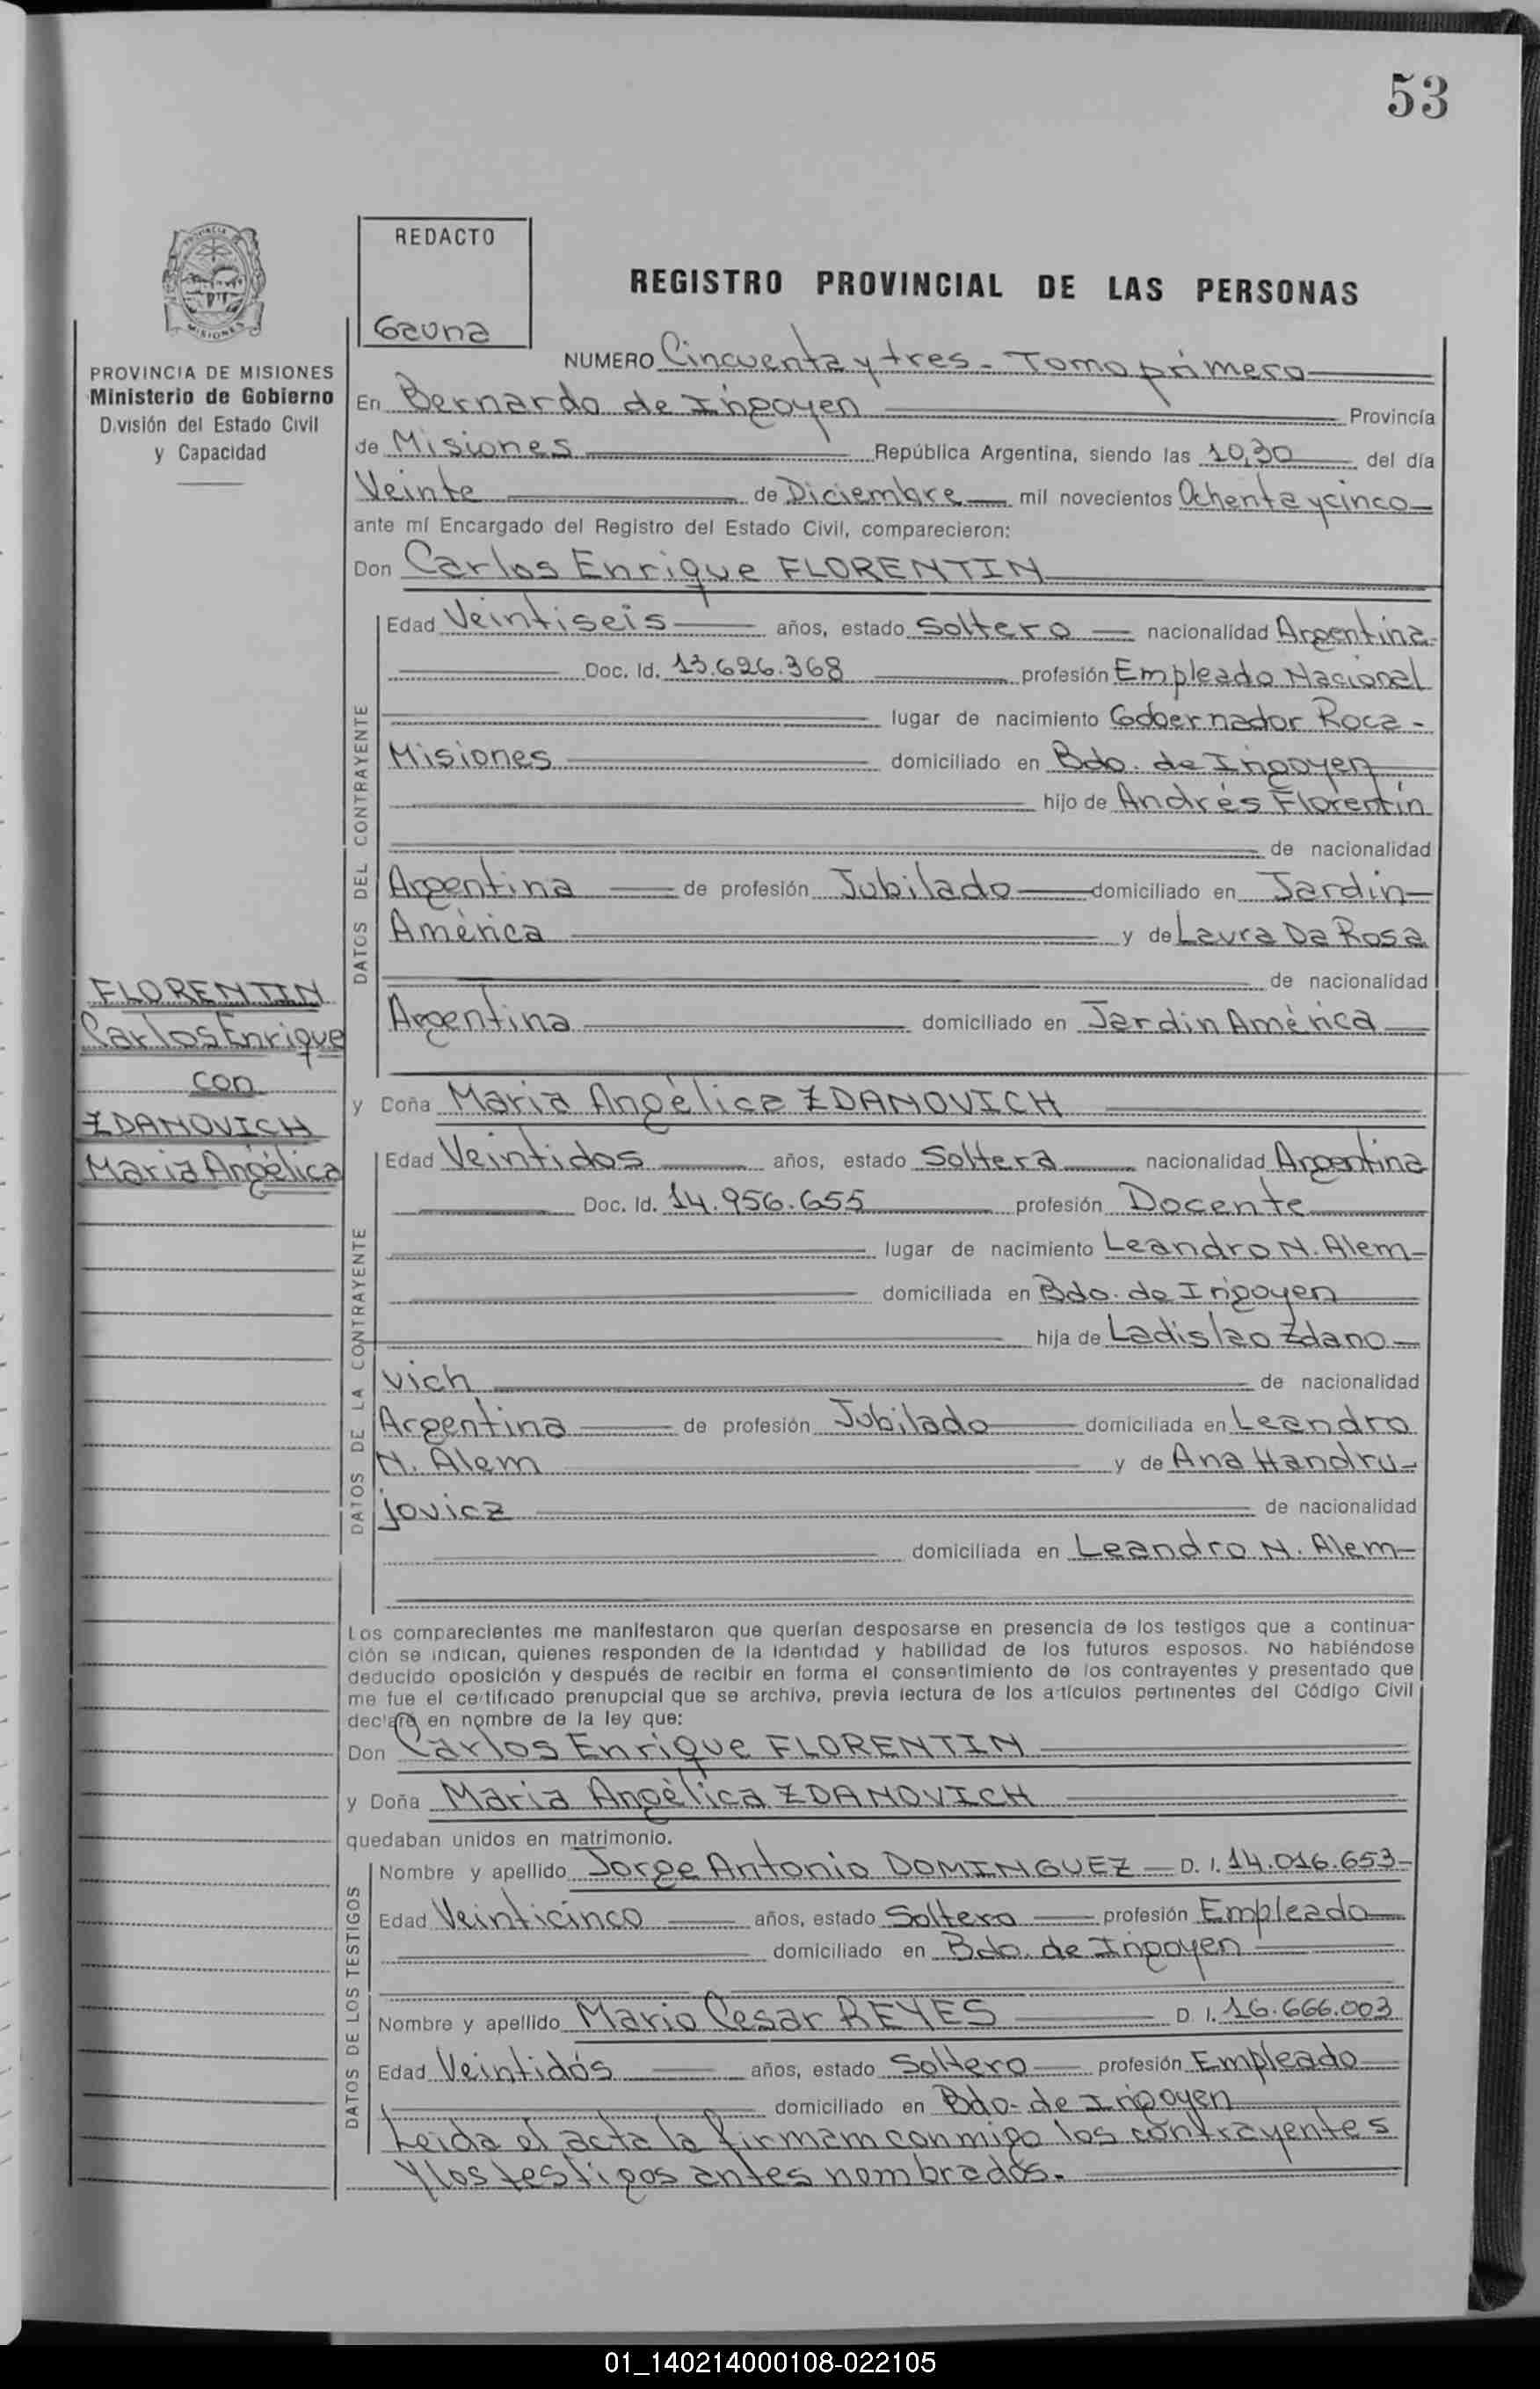 53
REDACTO
Gauna
REGISTRO PROVINCIAL DE LAS PERSONAS
PROVINCIA
MISIONES
PROVINCIA DE MISIONES
Ministerio de Gobierno
División del Estado Civil
y Capacidad
NUMERO Cincuenta y tres - Tomo primero
En Bernardo de Irigoyen Provincia
de Misiones República Argentina, siendo las 10,30 del día
Veinte de Diciembre mil novecientos Ochenta y cinco
ante mí Encargado del Registro del Estado Civil, comparecieron:
Don Carlos Enrique FLORENTIN
DATOS DEL CONTRAYENTE
Edad Veintiseis años, estado Soltero nacionalidad Argentina
Doc. Id. 13.626.368 profesión Empleado Nacional
lugar de nacimiento Gobernador Roca -
Misiones domiciliado en Bdo. de Irigoyen
hijo de Andrés Florentín
de nacionalidad
Argentina de profesión Jubilado domiciliado en Jardin
América y de Laura Da Rosa
de nacionalidad
Argentina domiciliado en Jardin América
FLORENTIN
Carlos Enrique
con
ZDANOVICH
Maria Angélica
y Doña Maria Angélica ZDANOVICH
DATOS DE LA CONTRAYENTE
Edad Veintidos años, estado Soltera nacionalidad Argentina
Doc. Id. 14.956.655 profesión Docente
lugar de nacimiento Leandro N. Alem
domiciliada en Bdo. de Irigoyen
hija de Ladislao Zdano-
vich de nacionalidad
Argentina de profesión Jubilado domiciliada en Leandro
N. Alem y de Ana Handru-
jovicz de nacionalidad
domiciliada en Leandro N. Alem
Los comparecientes me manifestaron que querían desposarse en presencia de los testigos que a continua-
ción se indican, quienes responden de la identidad y habilidad de los futuros esposos. No habiéndose
deducido oposición y después de recibir en forma el consentimiento de los contrayentes y presentado que
me fue el certificado prenupcial que se archiva, previa lectura de los artículos pertinentes del Código Civil
declaro en nombre de la ley que:
Don Carlos Enrique FLORENTIN
y Doña Maria Angélica ZDANOVICH
quedaban unidos en matrimonio.
DATOS DE LOS TESTIGOS
Nombre y apellido Jorge Antonio DOMINGUEZ D. I. 14.016.653
Edad Veinticinco años, estado Soltero profesión Empleado
domiciliado en Bdo. de Irigoyen
Nombre y apellido Mario Cesar REYES D. I. 16.666.003
Edad Veintidós años, estado Soltero profesión Empleado
domiciliado en Bdo- de Irigoyen
Leida el acta la firmam conmigo los contrayentes
y los testigos antes nombrados.
01_140214000108-022105